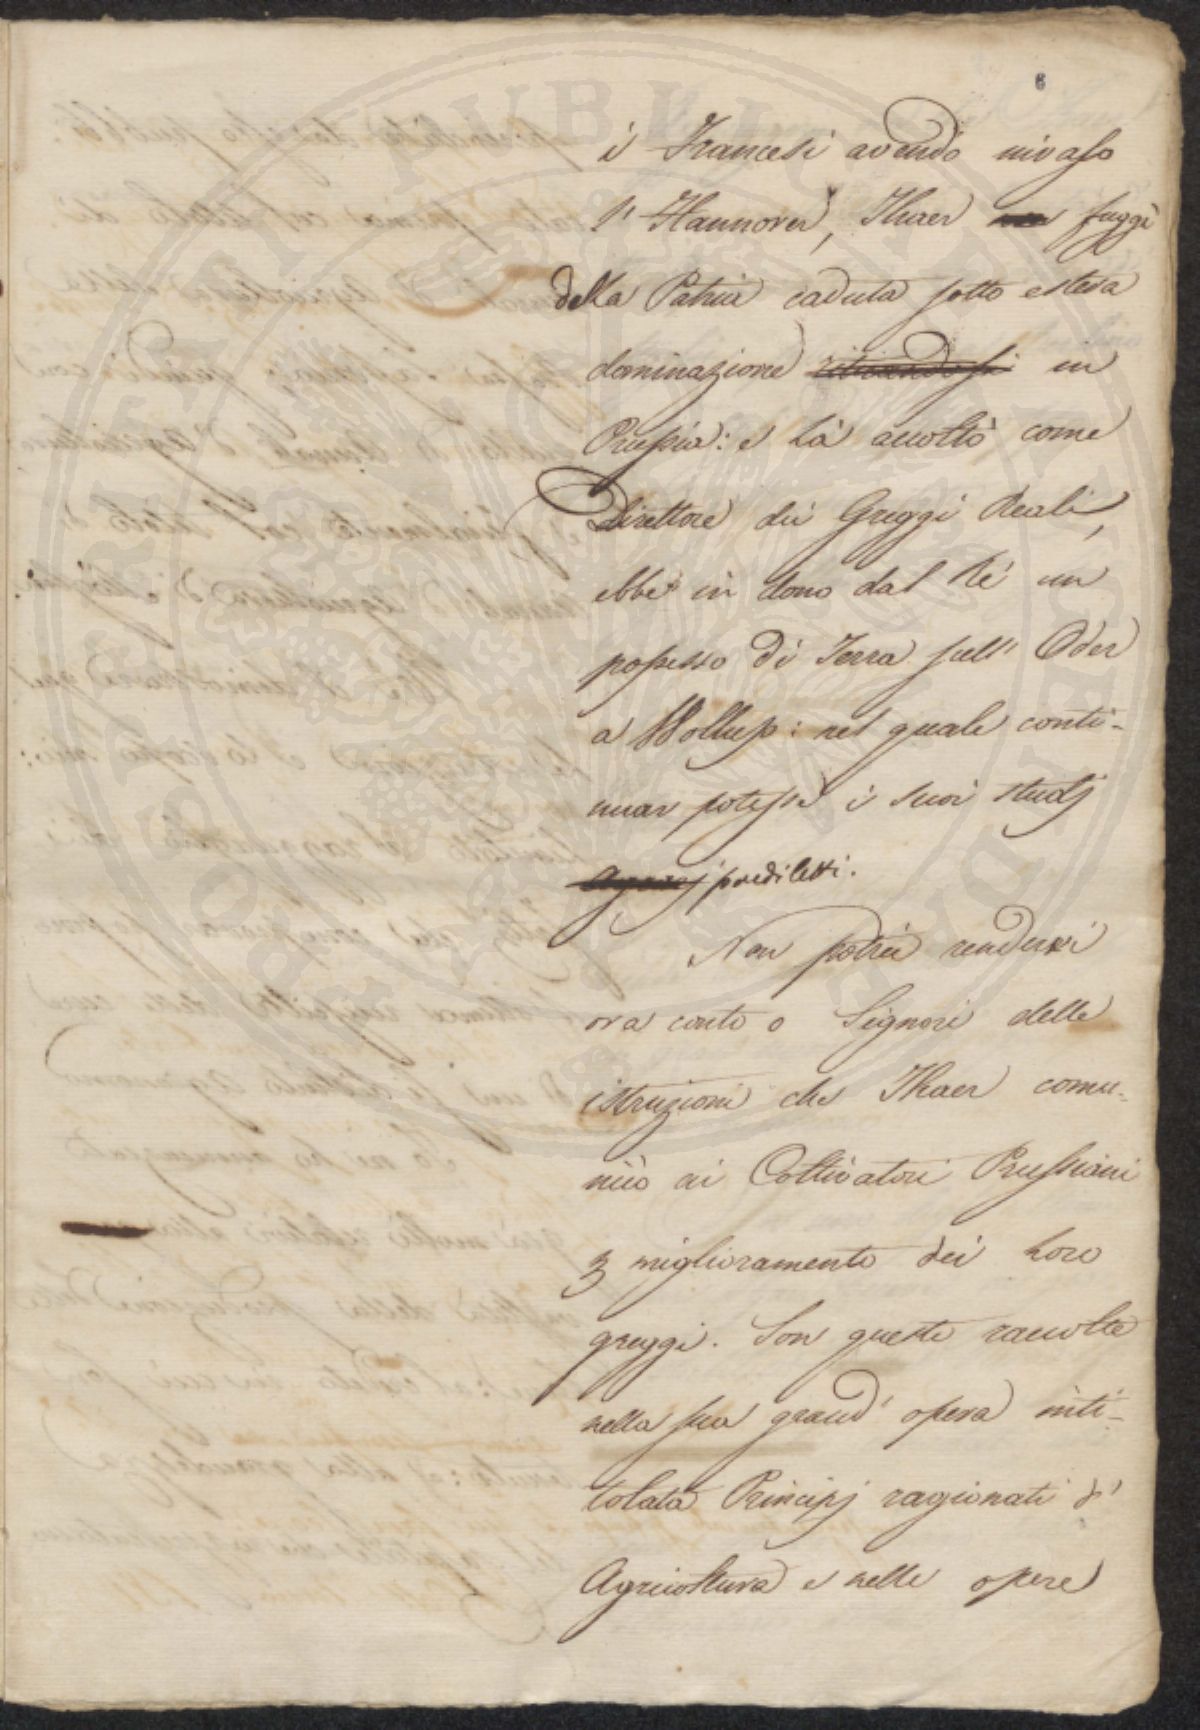 6
i Francesi avendo invaso
l'Hannover, Thaer fuggì
dalla Patria caduta sotto estera
dominazione ritirandosi in
Prussia: e là accolto come
Direttore dei Greggi Reali,
ebbe in dono dal Rè un
possesso di Terra sull' Oder
a Wollup: nel quale conti-
nuar potesse i suoi studj
agrarj prediletti.
Non potrei rendervi
ora conto o Signori delle
istruzioni che Thaer comu-
nicò ai Coltivatori Prussiani
miglioramento dei loro
greggi. Son queste raccolte
nella sua grand' opera inti-
tolata Principj ragionati d'
Agricoltura e nelle opere